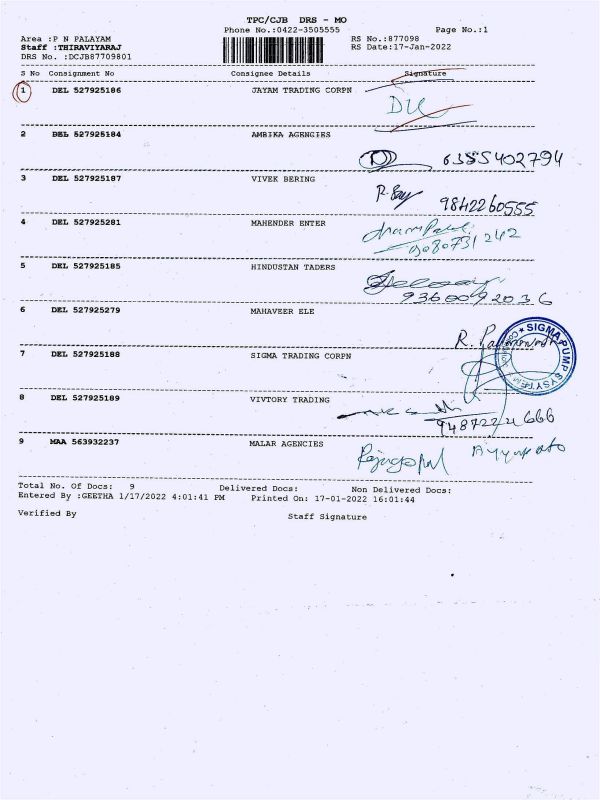 TPC/CJB DRS - MO
Phone No.:0422-3505555 Page No.:1
Area :P N PALAYAM RS No.:877098
Staff :THIRAVIYARAJ RS Date:17-Jan-2022
DRS No. :DCJB87709801
S No Consignment No Consignee Details Signature
1 DEL 527925186 JAYAM TRADING CORPN
2 DEL 527925184 AMBIKA AGENCIES
6385402794
3 DEL 527925187 VIVEK BERING
9842260555
4 DEL 527925281 MAHENDER ENTER
5 DEL 527925185 HINDUSTAN TADERS
9360092036
6 DEL 527925279 MAHAVEER ELE
SIGMA PUMP SYSTEM
7 DEL 527925188 SIGMA TRADING CORPN
8 DEL 527925189 VIVTORY TRADING
9 MAA 563932237 MALAR AGENCIES
Rajagopal
Total No. Of Docs: 9 Delivered Docs: Non Delivered Docs:
Entered By :GEETHA 1/17/2022 4:01:41 PM Printed On: 17-01-2022 16:01:44
Verified By Staff Signature